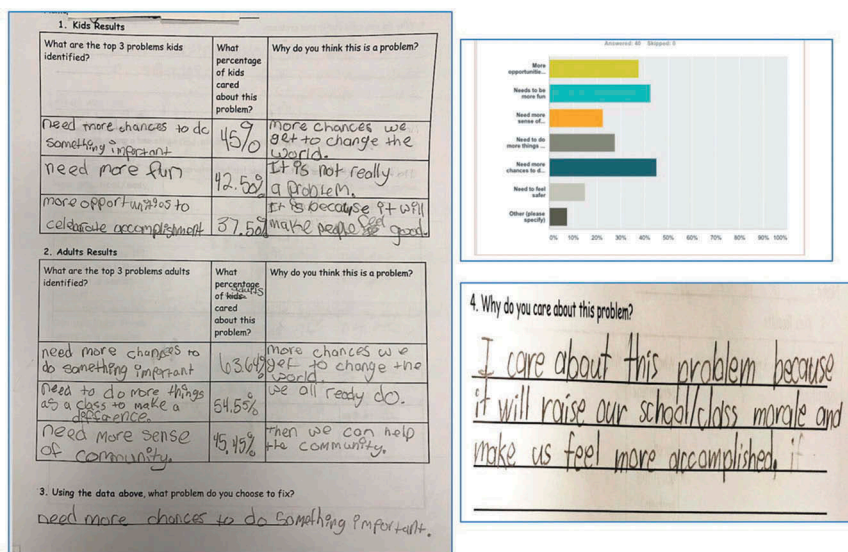 1. Kids Results
What are the top 3 problems kids
identified?
What
percentage
of kids
cared
about this
problem?
Why do you think this is a problem?
need more chances to do
something important
45%
More chances we
get to change the
world.
need more fun
42.50%
It is not really
a problem.
more opportunities to
celebrate accomplishment
37.50%
It is because it will
make people feel good.
2. Adults Results
What are the top 3 problems adults
identified?
What
percentage
of kids adults
cared
about this
problem?
Why do you think this is a problem?
need more chances to
do something important
63.64%
more chances we
get to change the
world.
need to do more things
as a class to make a
54.55%
we all ready do.
need more sense
of community.
45.45%
Then we can help
the community.
3. Using the data above, what problem do you choose to fix?
need more chances to do something important.
Answered: 40 Skipped: 0
More
opportunitie...
Needs to be
more fun
Need more
sense of...
Need to do
more things ...
Need more
chances to d...
Need to feel
safer
Other (please
specify)
0% 10% 20% 30% 40% 50% 60% 70% 80% 90% 100%
4. Why do you care about this problem?
I care about this problem because
it will raise our school/class morale and
make us feel more accomplished. if